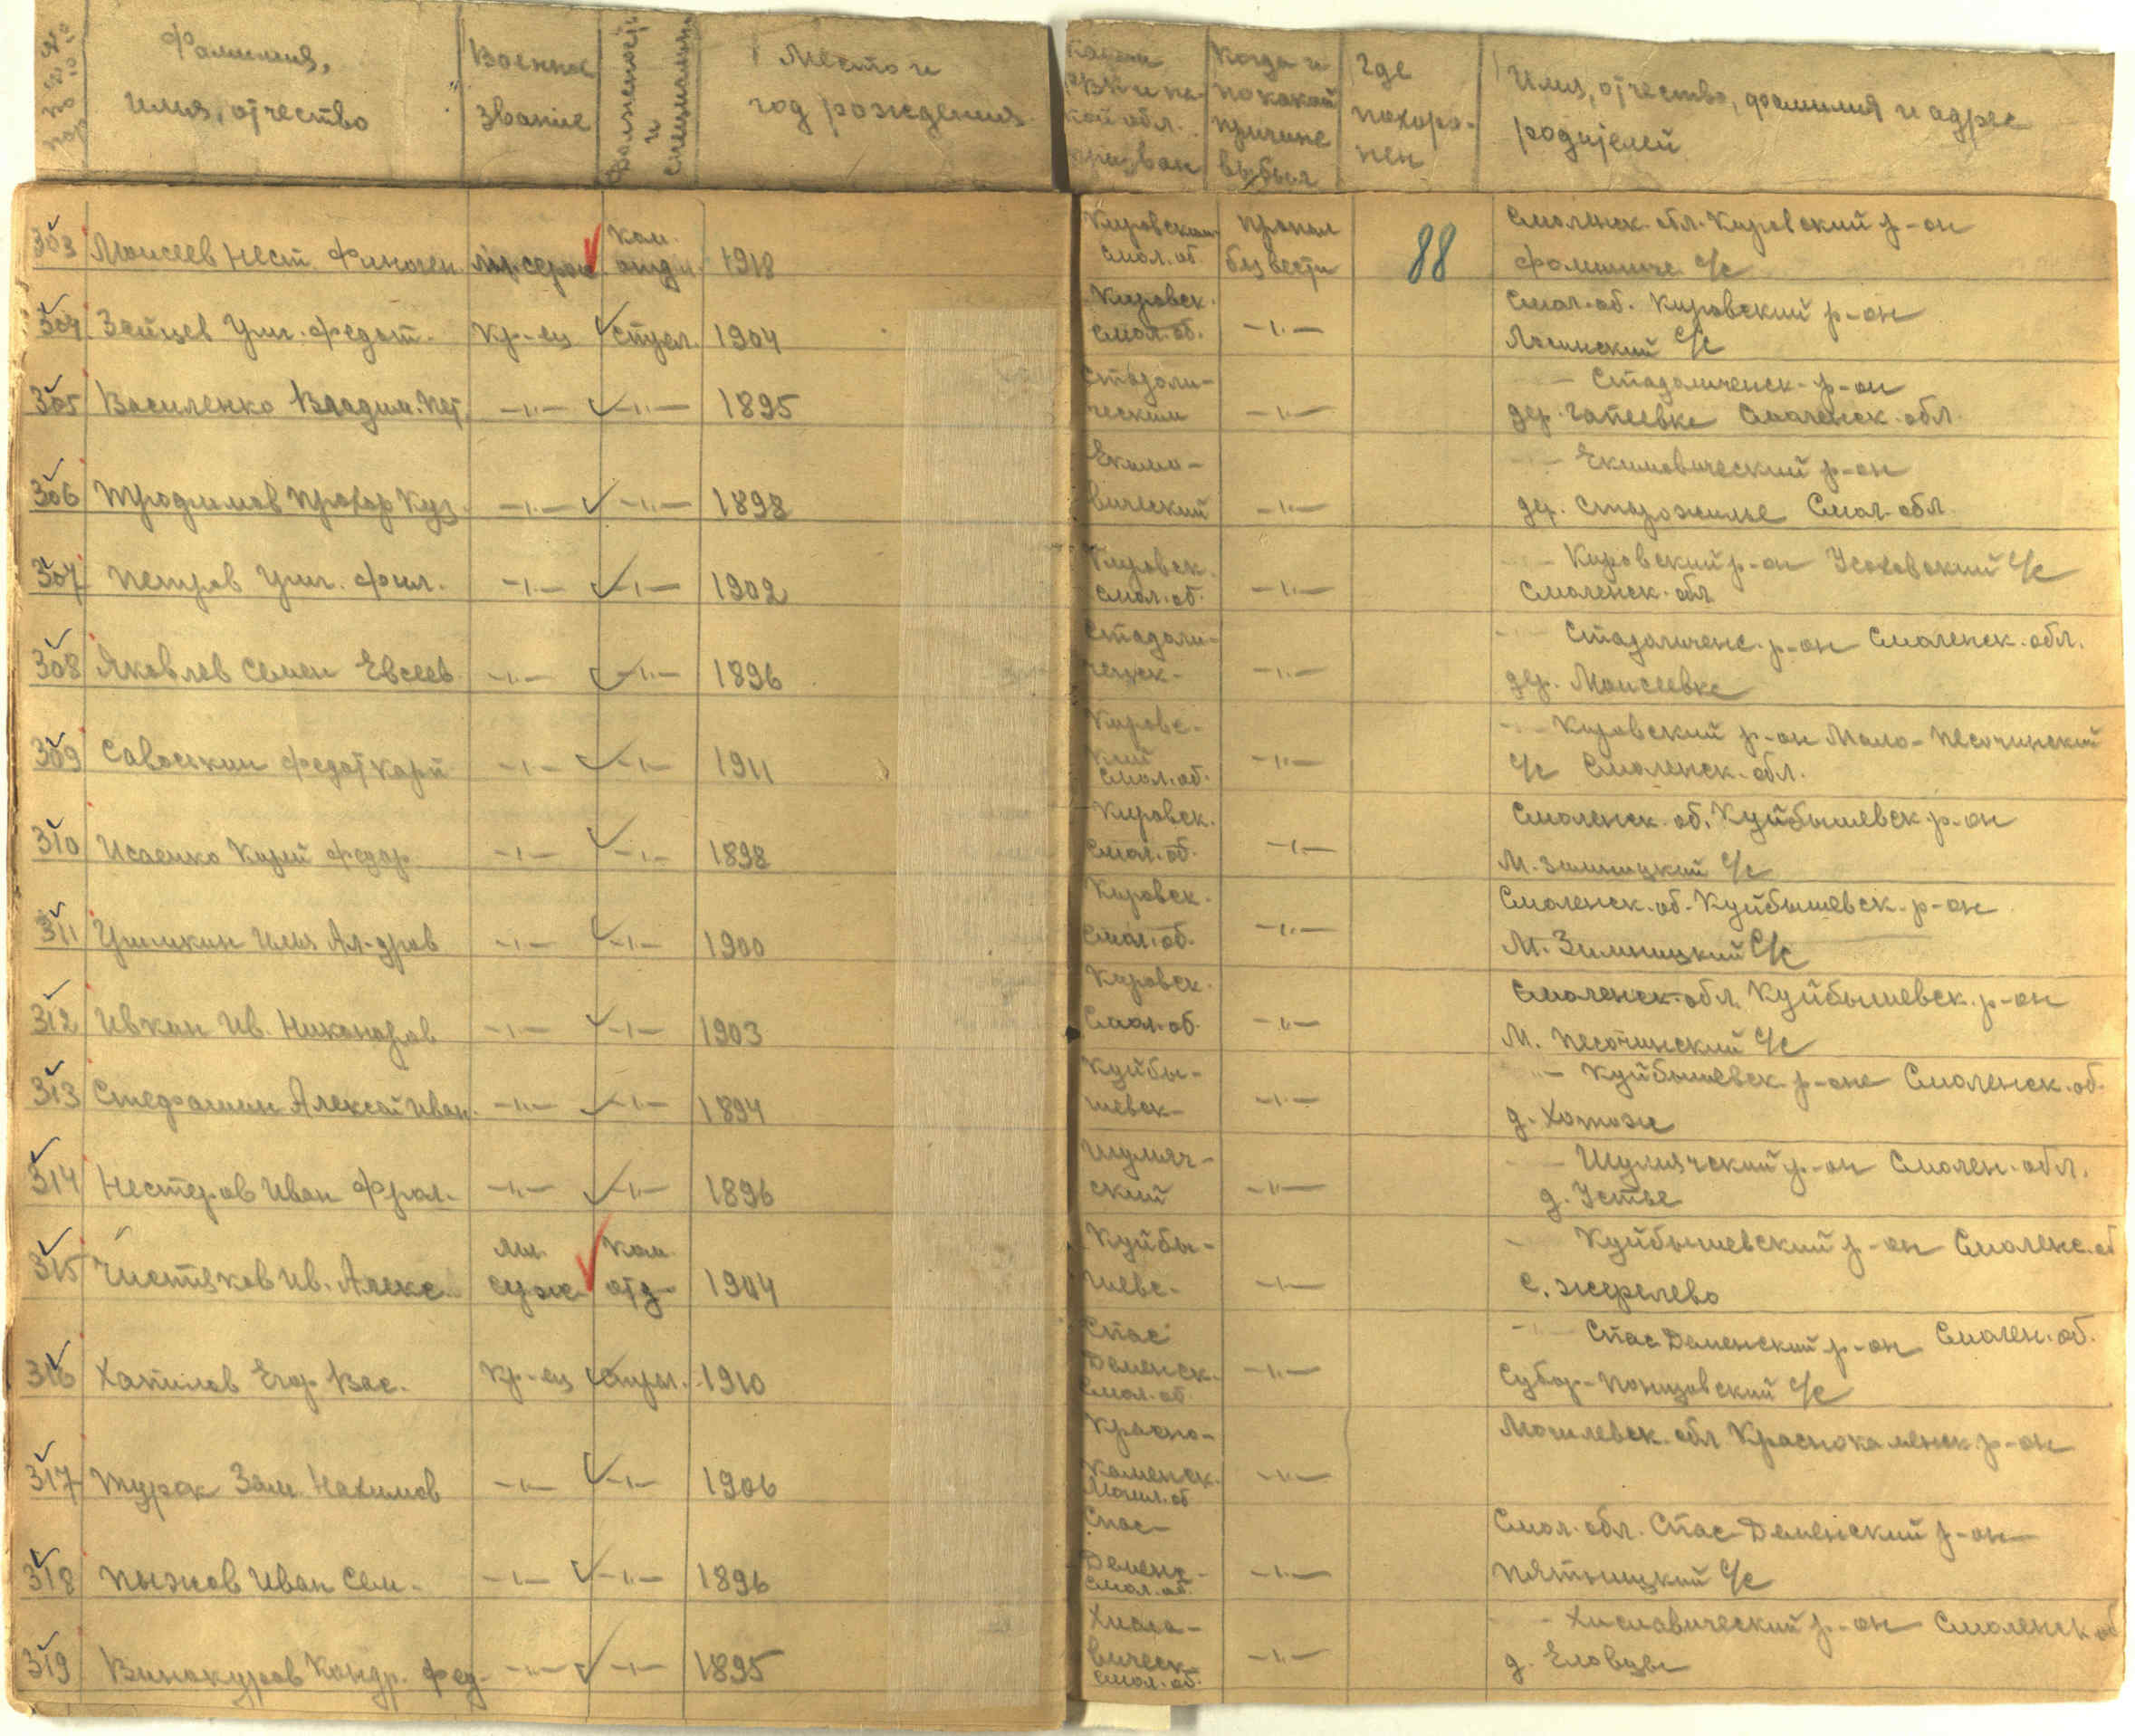 №№ по пор
Фамилия, имя, отчество
Военное звание
Должность и специальн
Место и год рождения
Каким РВК и какой обл. призван
Когда и по какой причине выбыл
Где похоронен
Имя, отчество, фамилия и адрес родителей
303 Моисеев Нест. мл. серж ком. отд. 1918 Кировским Смол. об. пропал без вести 88 Смоленск. обл. Кировский р-он с/с
304 Зайцев Федот. Кр-ец стрел. 1904 Кировск. Смол. об. -"- Смол. об. Кировский р-он Лосинский с/с
305 Василенко Владим. Пет. -"- -"- 1895 Стодоли-ческим -"- -"- Стодолическ. р-он дер. Гатеевке Смоленск. обл.
306 Трофимов Прохор Куз. -"- -"- 1898 Екимо-вический -"- -"- Екимовический р-он дер. Старожилье Смол. обл.
307 Петров Фил. -"- -"- 1902 Кировск. Смол. об. -"- -"- Кировский р-он с/с Смоленск. обл.
308 Яковлев Семен Евсеев. -"- -"- 1896 -"- -"- р-он Смоленск. обл. дер. Моисеевке
309 Савоськин Федот Карп -"- -"- 1911 Кировс-кий Смол. об. -"- -"- Кировский р-он Мало-Песочинский с/с Смоленск. обл.
310 Исаенко Федор -"- -"- 1898 Кировск. Смол. об. -"- Смоленск. об. Куйбышевск. р-он М. Зимницкий с/с
311 Илья Ал-дров -"- -"- 1900 Кировск. Смол. об. -"- Смоленск. об. Куйбышевск. р-он М. Зимницкий с/с
312 Ивкин Ив. Никоноров -"- -"- 1903 Кировск. Смол. об. -"- Смоленск. обл. Куйбышевск. р-он М. Песочинский с/с
313 Стефашин Алексей Иван. -"- -"- 1894 Куйбы-шевск- -"- -"- Куйбышевск. р-оне Смоленск. об. д. Хотожи
314 Нестеров Иван Фрол. -"- -"- 1896 Шумяч-ский -"- -"- Шумячский р-он Смолен. обл. д. Устье
315 Чистяков Ив. Алекс. мл. серж ком. отд- 1904 Куйбы-шевс- -"- - Куйбышевский р-он Смоленс. об с. Жерелево
316 Хатилов Егор Вас. Кр-ец стрел. 1910 Спас Деменск. Смол. об. -"- -"- Спас Деменский р-он Смолен. об. с/с
317 Турок Зам. Нахимов -"- -"- 1906 Красно-каменск. Могил. об -"- Могилевск. обл Краснокаменск р-он
318 Пыжов Иван Сем. -"- -"- 1896 Спас-Деменс- Смол. об. -"- Смол. обл. Спас-Деменский р-он Пятницкий с/с
319 Винокуров Кондр. Фед- -"- -"- 1895 Хисла-вическ. Смол. об. -"- -"- Хиславический р-он Смоленск об д. Еловцы